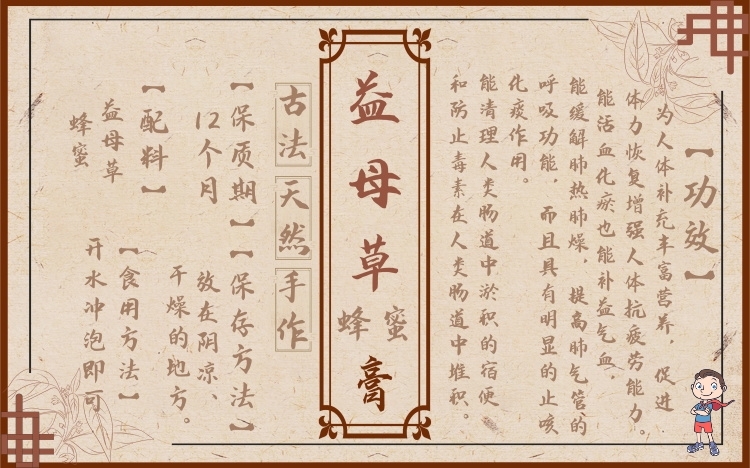 【功效】
为人体补充丰富营养，促进
体力恢复增强人体抗疲劳能力。
能活血化瘀也能补益气血，
能缓解肺热肺燥，提高肺气管的
呼吸功能，而且具有明显的止咳
化痰作用。
能清理人类肠道中淤积的宿便
和防止毒素在人类肠道中堆积。
益母草
蜂蜜
膏
古法
天然
手作
【保质期】
12个月
【保存方法】
放在阴凉、
干燥的地方。
【配料】
益母草
蜂蜜
【食用方法】
开水冲泡即可